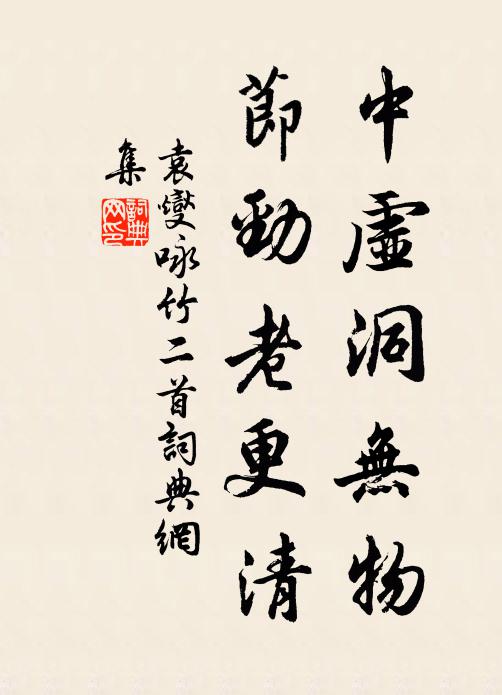 中虛洞無物
節勁老更清
袁燮咏竹二首詞典網
集
詞典网印